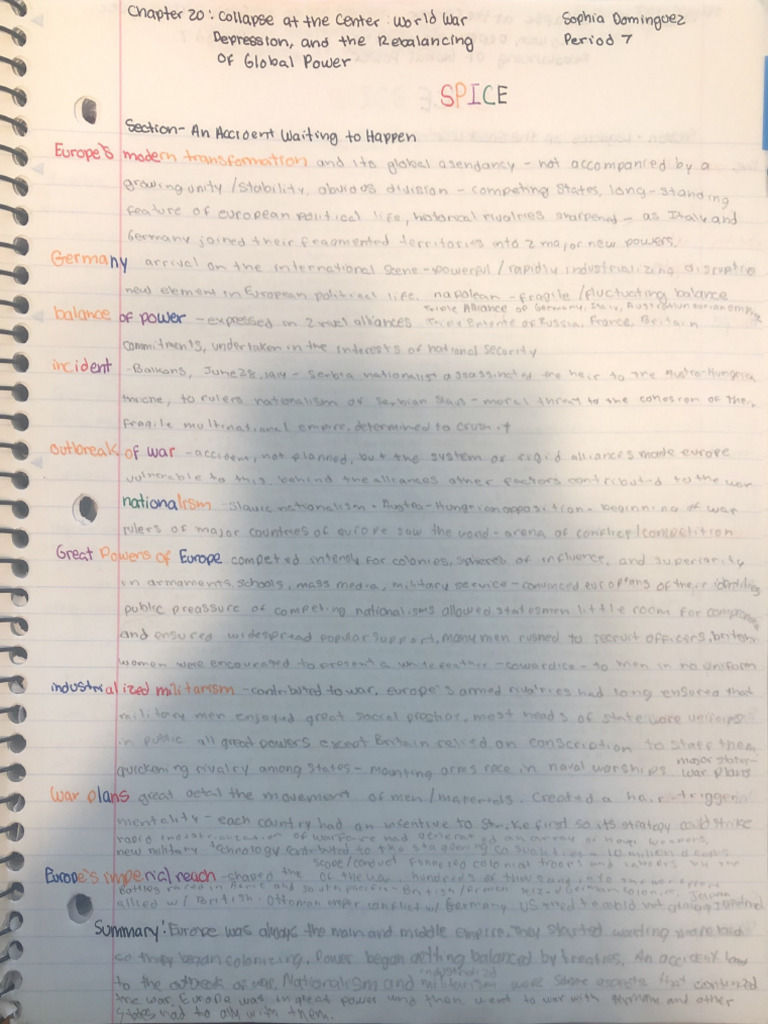 Chapter 20: Collapse at the Center: World War
Sophia Dominguez
Depression, and the Rebalancing
Period 7
Of Global Power
SPICE
Section- An Accident Waiting to Happen
Europe's modern transformation and its global asendancy - not accompanied by a
growing unity/stability, obvious division - competing states, long-standing
feature of european political life, historical rivalries sharpened - as Italy and
Germany joined their fragmented territories into 2 major new powers.
Germany arrival on the international scene - powerful/rapidly industrializing disruptive
new element in European political life. napolean - fragile/fluctuating balance
Triple Alliance of Germany, Italy, Austro
balance of power - expressed in 2 rival alliances Triple Entente of Russia, France, Britain
commitments, undertaken in the interests of national security
incident - Balkans, June 28, 1914 - Serbia nationalist assassinated the heir to the Austro-Hungarian
throne, to rulers nationalism of Serbian Slavs - moral threat to the cohesion of their
fragile multinational empire, determined to crush it
outbreak of war - accident, not planned, but the system of rigid alliances made europe
vulnerable to this behind the alliances other factors contributed to the war
nationalism - Slavic nationalism + Austro-Hungarian opposition - beginning of war
rulers of major countries of europe saw the - arena of conflict/competition
Great Powers of Europe competed intensly for colonies, spheres of influence, and superiority
in armaments, schools, mass media, military service - convinced europeans of their identities
public preassure of competing nationalisms allowed statesmen little room for
and ensured widespread popular support, many men rushed to recruit officers, british
women were encouraged to present a white feather - cowardice - to men in no uniform
industrialized militarism - contributed to war, europe's armed rivalries had long ensured that
military men enjoyed great social prestige, most heads of state wore uniforms
in public all great powers except Britain relied on conscription to staff them
quickening rivalry among states - mounting arms race in naval warships major states-
war plans
War plans great detail the movement of men/materials. Created a hair-trigger
mentality - each country had an incentive to strike first so its strategy could strike
rapid industrialization of warfare had generated an array of novel weapons,
new military technology contributed to the staggering casualties - 10 million deaths
Europe's imperial reach - shaped the scope/conduct of the war. hundreds of thousand
battles raged in Africa and South pacific - British/French seized German colonies, Japan
allied w/ British. Ottoman empire conflict w/ Germany. US tried to avoid
Summary: Europe was always the main and middle empire. They started wanting more land
so they began colonizing. Power began getting balanced by treaties. An accident
to the outbreak of war. Nationalism and industrialized militarism were some aspects that
the war. Europe was in great power and then went to war with Germany and other
states had to ally with them.